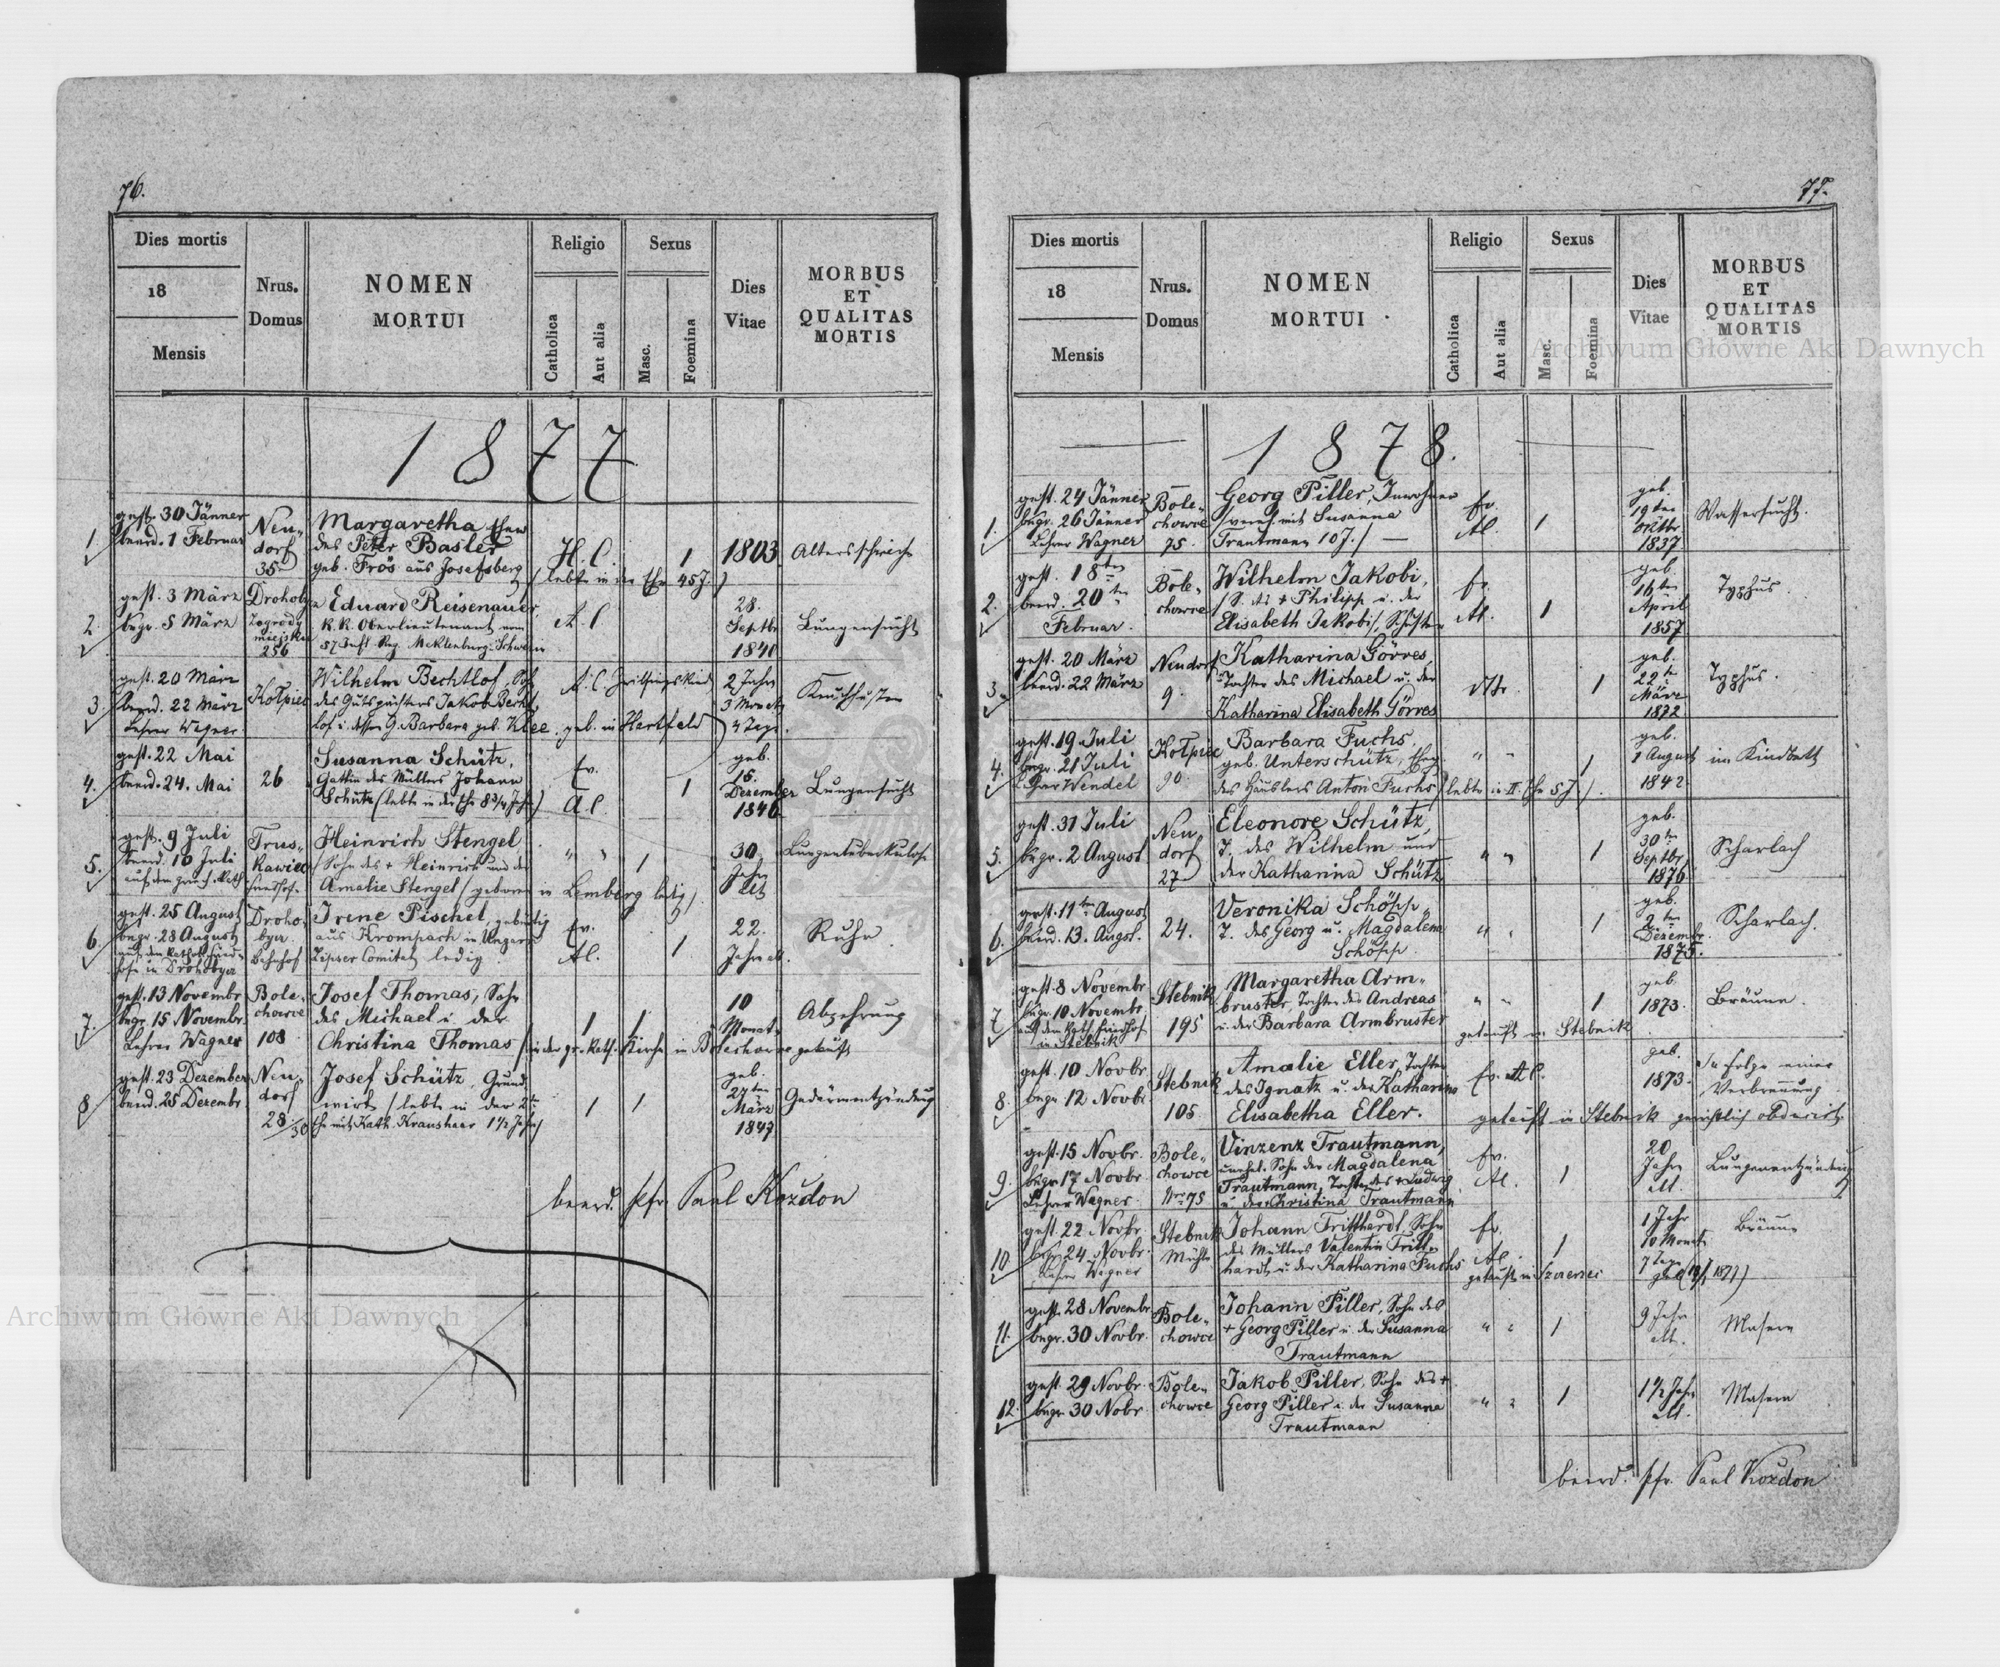 76.
Dies mortis
18
Mensis
Nrus.
Domus
NOMEN
MORTUI
Religio
Catholica
Aut alia
Sexus
Masc.
Foemina
Dies
Vitae
MORBUS
ET
QUALITAS
MORTIS
1877
1.
gest. 30 Jänner
beerd. 1 Februar
Neu-
dorf
35
Margaretha Ehew
des Peter Basler
geb. Prös aus Josefsberg
(lebte in der Ehe 45 J.)
H. C.
1
1803
Altersschwäche
2.
gest. 3 März
begr. 5 März
Drohobycz
Zagrody
miejskie
256
Eduard Reisenauer,
K. K. Oberlieutenant vom
57 Inft. Reg. Meklenburg-Schwerin
A. C
28.
Septbr
1841
Lungensucht
3.
gest. 20 März
beerd. 22 März
Lehrer Wagner
Kolpiec
Wilhelm Bechtlof, Sohn
des Gutspächters Jakob Becht-
lof u. dessen G. Barbara geb. Klee. geb. in Hartfeld
A. C.
2 Jahre
3 Monate
4 Tage
Keuchhusten
4.
gest. 22 Mai
beerd. 24. Mai
26
Susanna Schütz,
Gattin des Müllers Johann
Schütz (lebte in der Ehe 8 3/4 Jahre)
Ev.
A. C.
1
geb.
15.
Dezember
1846
Lungensucht
5.
gest. 9 Juli
beerd. 10 Juli
Trus-
kawiec
Heinrich Stengel
(Sohn des + Heinrich und der
Amalie Stengel (geboren in Lemberg ledig)
" "
1
30.
Jahre
alt
Lungentuberkulose
6.
gest. 25 August
begr. 28 August
auf dem kathol. Fried-
hofe in Drohobycz
Droho-
bycz
Bahnhof
Irene Pischel, gebürtig
aus Krompach in Ungarn
Zipser Comitat ledig.
Ev.
Al.
1
22.
Jahre alt.
Ruhr
7.
gest. 13 Novembr
begr. 15 Novembr.
Lehrer Wagner
Bole-
chowce
108
Josef Thomas, Sohn
des Michael u. der
Christina Thomas (in der gr. kath. Kirche in Bolechowce getauft
1
1
10
Monate
Abzehrung
8
gest. 23 Dezember
beerd. 25 Dezembr
Neu-
dorf
28/30
Josef Schütz, Grund-
wirth (lebte in der 2ten
Ehe mit Kath. Kraushaar 1 1/2 Jahre)
1
1
geb.
27ten
März
1847
Gedärmentzündung
beerd. Pfr. Paul Kozdon
77.
Dies mortis
18
Mensis
Nrus.
Domus
NOMEN
MORTUI
Religio
Catholica
Aut alia
Sexus
Masc.
Foemina
Dies
Vitae
MORBUS
ET
QUALITAS
MORTIS
1878.
1.
gest. 24 Jänner
begr. 26 Jänner
Lehrer Wagner
Bole-
chowce
75.
Georg Piller, Inwohner
(verehl. mit Susanna
Trautmann 10 J.) —
Ev.
Al.
1
geb.
19ten
Oktbr
1837
Wassersucht.
2.
gest. 18ten
beerd. 20ten
Februar.
Bole-
chowce
Wilhelm Jakobi,
(S. des + Philipp u. der
Elisabeth Jakobi), Schuster
Ev.
Al.
1
geb.
16ten
April
1857
Typhus.
3.
gest. 20 März
beerd. 22 März
Neudorf
9.
Katharina Görres,
Tochter des Michael u. der
Katharina Elisabeth Görres
1
geb.
22ten
März
1872
Typhus.
4.
gest. 19 Juli
begr. 21 Juli
Pfarr Wendel
Kolpiec
90.
Barbara Fuchs,
geb. Unterschütz, Ehegt.
des Häuslers Anton Fuchs (lebte in II. Ehe 5 J.).
" "
1
geb.
1 August
1842
im Kindbett
5.
gest. 31 Juli
begr. 2 August
Neu-
dorf
27
Eleonore Schütz,
T. des Wilhelm und
der Katharina Schütz
" "
1
geb.
30ten
Septbr
1876
Scharlach
6.
gest. 11ten August
beerd. 13. August.
24.
Veronika Schöpp,
T. des Georg u. Magdalena
Schöpp.
" "
1
geb.
2ten
Dezembr.
1875.
Scharlach.
7
gest. 8 Novembr
begr. 10 Novembr.
auf dem Kath. Friedhof
in Stebnik
Stebnik
195
Margaretha Arm-
bruster, Tochter des Andreas
u. der Barbara Armbruster
" "
getauft in Stebnik
1
geb.
1873.
Bräune.
8.
gest. 10 Novbr.
begr. 12 Novbr.
Stebnik
105.
Amalie Eller, Tochter
des Ignatz u. der Katharina
Elisabetha Eller.
Ev. Al.
getauft in Stebnik gerichtlich obducirt.
geb.
1873.
In Folge einer
Verbrennung
9.
gest. 15 Novbr.
begr. 17 Novbr.
Lehrer Wagner.
Bole-
chowce
Nro. 75
Vinzenz Trautmann,
unehel. Sohn der Magdalena
Trautmann, Tochter des + Ludwig
u. der Christina Trautmann
Ev.
Al.
1
20
Jahre
alt.
Lungenentzündung
10
gest. 22. Novbr.
begr. 24. Novbr.
Lehrer Wagner
Stebnik
Mühle
Johann Tritthardt, Sohn
des Müllers Valentin Tritt-
hardt u. der Katharina Fuchs
Ev.
Al.
1
1 Jahr
10 Monate
7 Tage
Bräune
11.
gest. 28 Novembr
begr. 30 Novbr.
Bole-
chowce
Johann Piller, Sohn des
+ Georg Piller u. der Susanna
Trautmann
" "
1
9 Jahre
alt.
Masern
12.
gest. 29 Novbr.
begr. 30 Nobr.
Bole-
chowce
Jakob Piller, Sohn des +
Georg Piller u. der Susanna
Trautmann
" "
1
1 1/2 Jahre
alt.
Masern
beerd. Pfr. Paul Kozdon
Archiwum Główne Akt Dawnych
Archiwum Główne Akt Dawnych